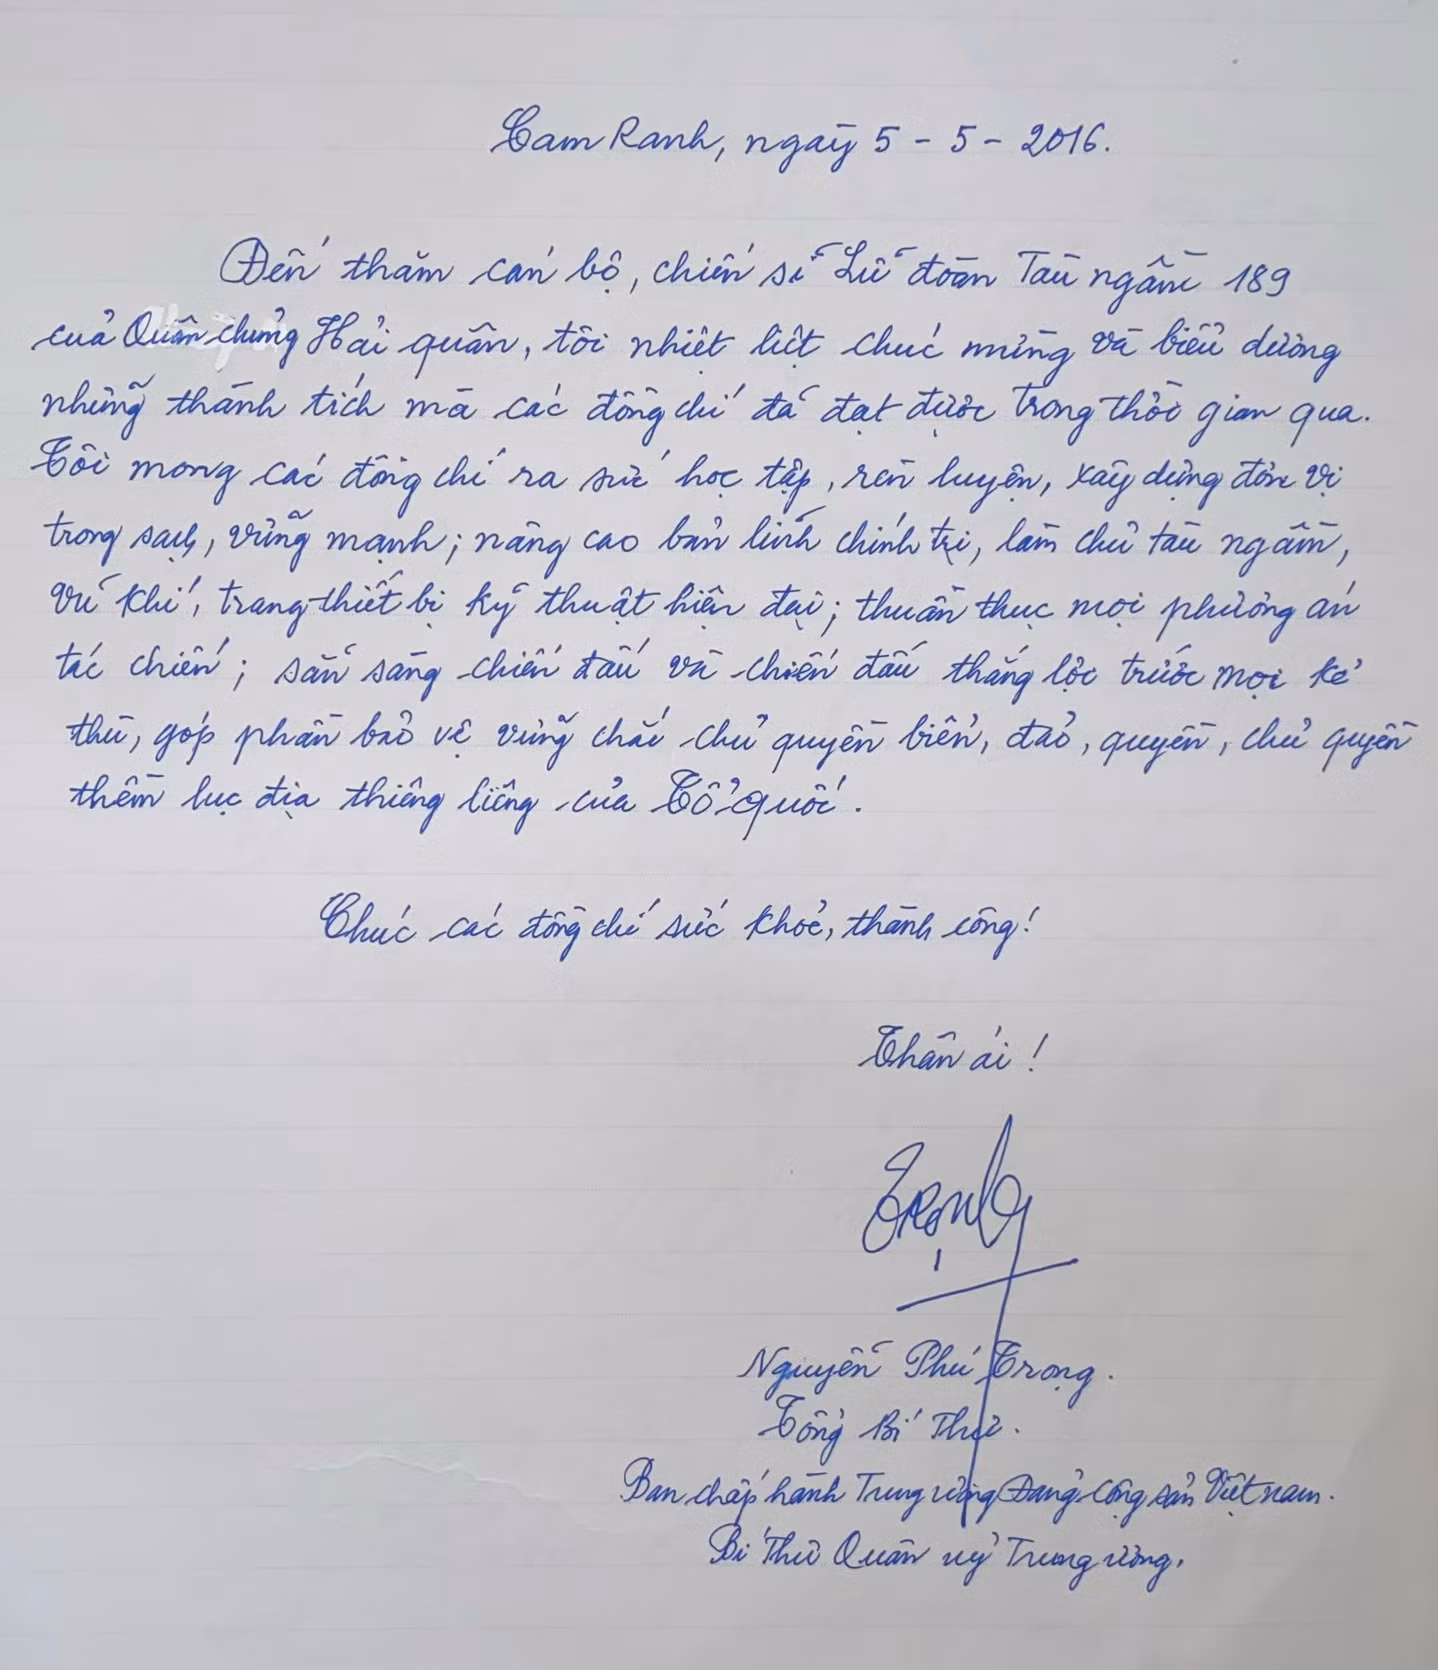 Cam Ranh, ngày 5 - 5 - 2016.
Đến thăm cán bộ, chiến sĩ Lữ đoàn Tàu ngầm 189
của Quân chủng Hải quân, tôi nhiệt liệt chúc mừng và biểu dương
những thành tích mà các đồng chí đã đạt được trong thời gian qua.
Tôi mong các đồng chí ra sức học tập, rèn luyện, xây dựng đơn vị
trong sạch, vững mạnh; nâng cao bản lĩnh chính trị, làm chủ tàu ngầm,
vũ khí, trang thiết bị kỹ thuật hiện đại; thuần thục mọi phương án
tác chiến; sẵn sàng chiến đấu và chiến đấu thắng lợi trước mọi kẻ
thù, góp phần bảo vệ vững chắc chủ quyền biển, đảo, quyền, chủ quyền
thềm lục địa thiêng liêng của Tổ quốc.
Chúc các đồng chí sức khỏe, thành công!
Thân ái!
Trọng
Nguyễn Phú Trọng.
Tổng Bí Thư.
Ban chấp hành Trung ương Đảng Cộng sản Việt nam.
Bí Thư Quân uỷ Trung ương.